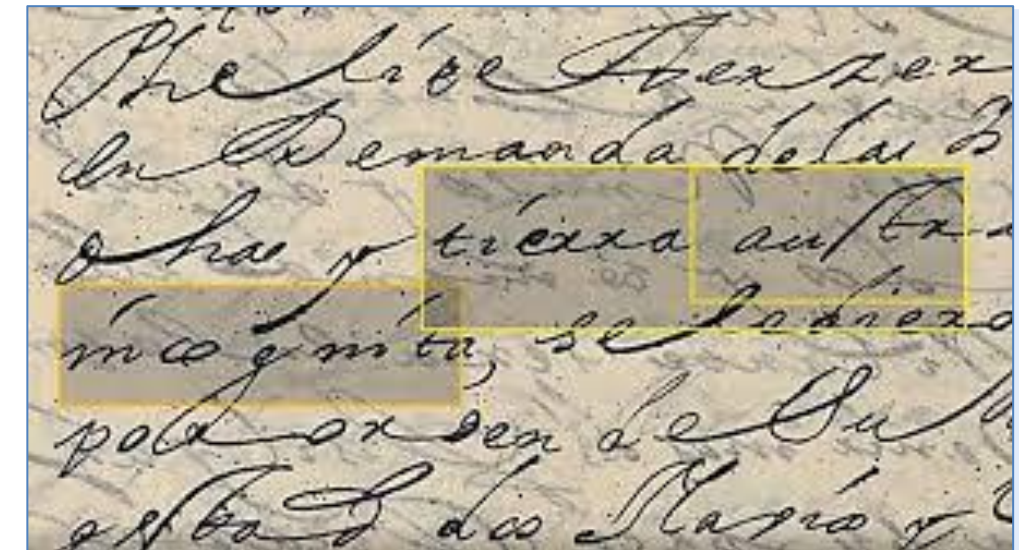 Phelipe Terzer
en Demanda de las
o has y tierra austr
incognita, se
por orden de Su
estad dos Navios y